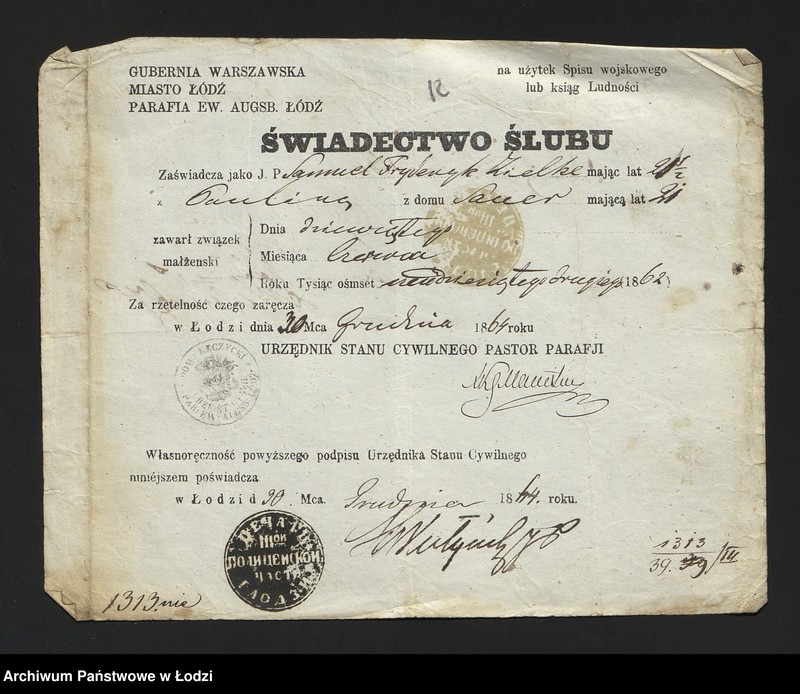 GUBERNIA WARSZAWSKA
MIASTO ŁÓDŹ
PARAFIA EW. AUGSB. ŁÓDŹ
na użytek Spisu wojskowego
lub ksiąg Ludności
12
ŚWIADECTWO ŚLUBU
Zaświadcza jako J. P. Samuel Fryderyk Zielke mając lat
z Pauliną z domu Sauer mającą lat 21
zawarł związek małżeński
Dnia dziewiątego
Miesiąca Czerwca
Roku Tysiąc ośmset sześćdziesiątego drugiego 1862
Za rzetelność czego zaręcza
w Łodzi dnia 30 Mca Grudnia 1864 roku
URZĘDNIK STANU CYWILNEGO PASTOR PARAFJI
Własnoręczność powyższego podpisu Urzędnika Stanu Cywilnego
niniejszem poświadcza
w Łodzi d 30 Mca. Grudnia 1864. roku.
ПЕЧАТЬ
III ОЙ
ПОЛИЦЕЙСКОЙ
ЧАСТИ
Г. ЛОДЗИ
1313
39. /III
1313.
Archiwum Państwowe w Łodzi